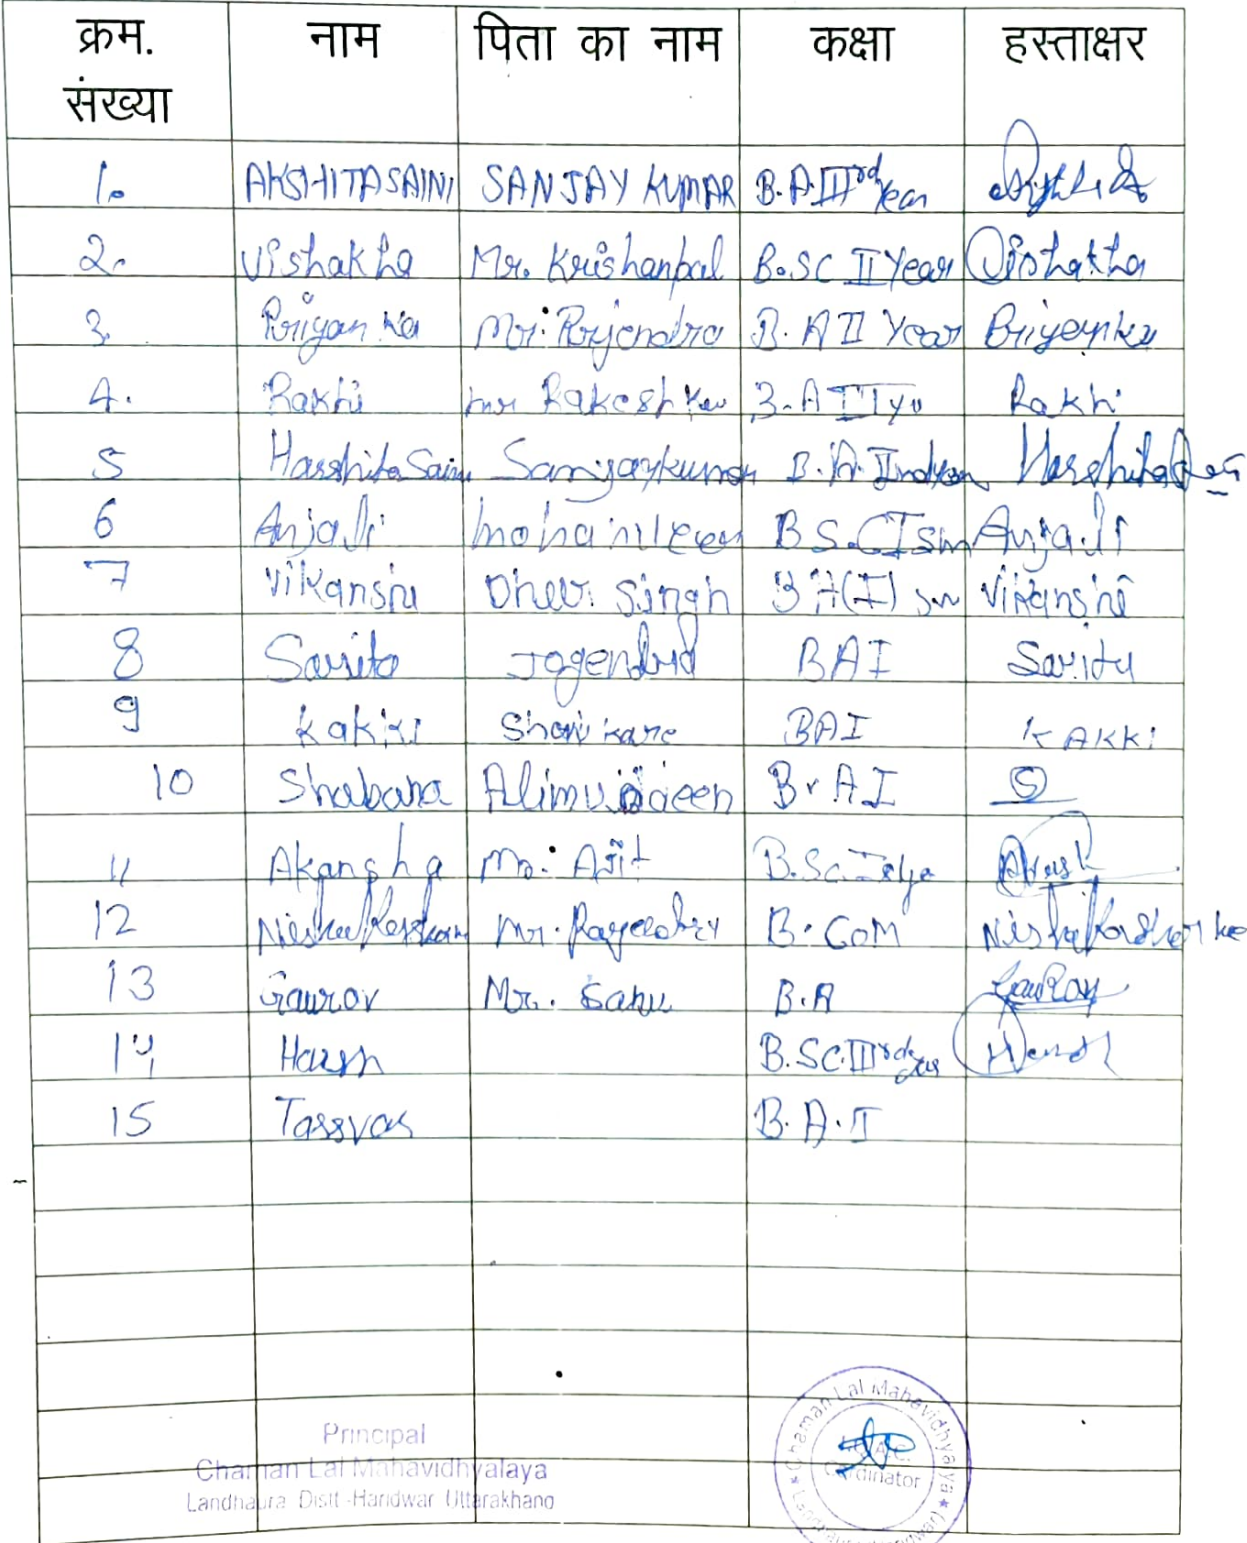 क्रम. संख्या नाम पिता का नाम कक्षा हस्ताक्षर
1. AKSHITA SAINI SANJAY KUMAR B.A.IIIrd Year
2. Vishakha Mr. Krishanpal B.SC II Year Vishakha
3. Priyanka Mr. Rajendra B.A II Year Priyanka
4. Rakhi mr Rakesh B.A II yr Rakhi
5 Harshita Saini Sanjay kumar B.A. IInd year Harshita
6 Anjali B S.C I sm Anjali
7 Vikanshi Singh B A (I) Vikanshi
8 Sarita Jogendra BAI Sarita
9 kakki BAI KAKKI
10 Shabana B.A I S
11 Akansha Mr. Ajit B.Sc. I
12 Mr. B.COM
13 Gaurav Mr. B.A Gaurav
14 Harsh B.SC.IIIrd
15 B.A.I
Principal
Chaman Lal Mahavidhyalaya
Landhaura Distt.-Haridwar Uttarakhand
Chaman Lal Mahavidhyalaya
Coordinator